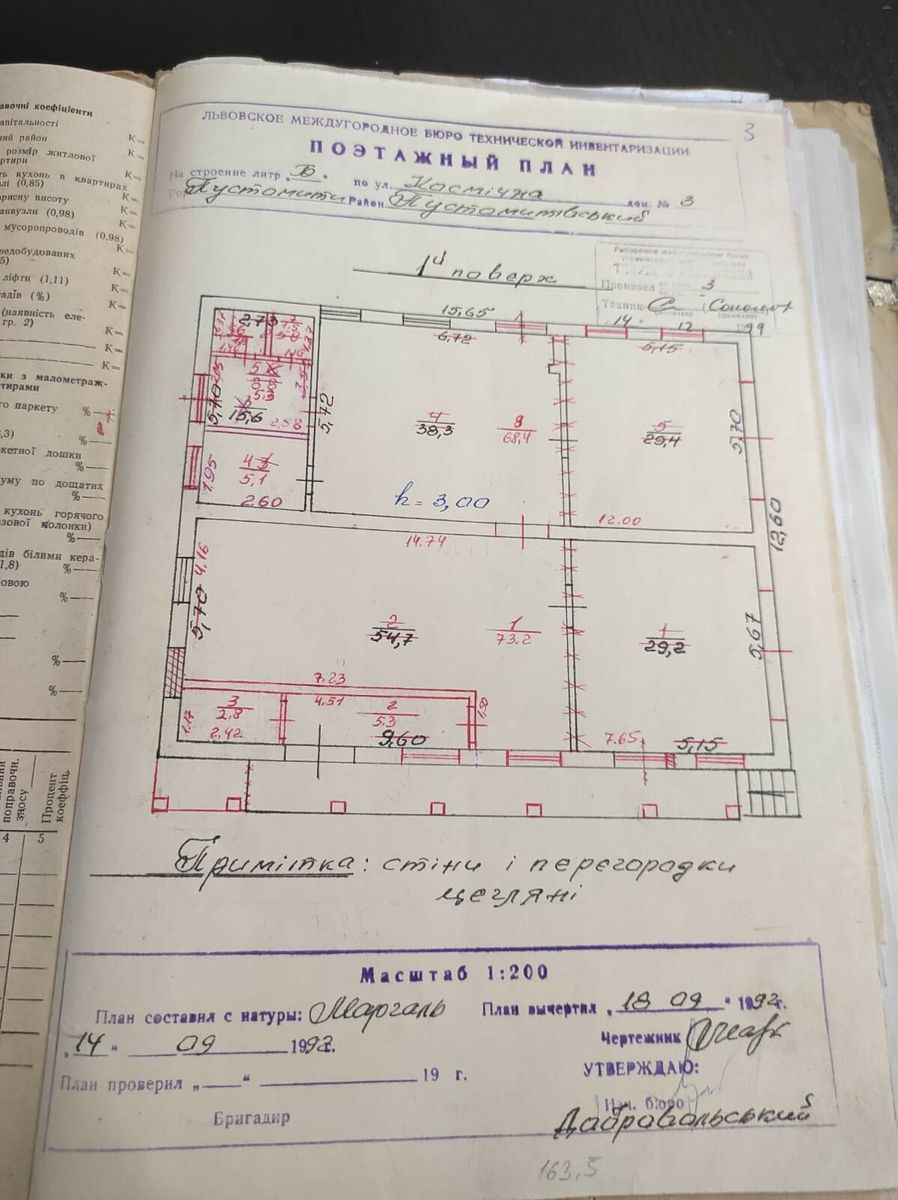 авочні коефіціенти
апітальності
ний район К—
розмір житлової
ртири К—
ть кухонь в квартирах
лі (0,85) К—
орисну висоту К—
анвузли (0,98) К—
мусоропроводів (0,98)
К—
недобудованих
5) К—
ліфти (1,11) К—
адів (%) К—
(наявність еле-
гр. 2) К—
К—
К—
ки з малометраж-
ртирами
го паркету %—
,3) %—
кетної дошки
%—
уму по дощатих
%—
кухонь горячого
азової колонки)
%—
дів білими кера-
1,8) %—
овою
%—
%—
%—
поправочн.
зносу
Процент
коеффіц.
4 5
3
ЛЬВОВСКОЕ МЕЖДУГОРОДНОЕ БЮРО ТЕХНИЧЕСКОЙ ИНВЕНТАРИЗАЦИИ
ПОЭТАЖНЫЙ ПЛАН
На строение литр „Б" по ул. Космічна дом. № 3
Пустомити Район Пустомитівський
1й поверх
Произвел 3
Техник
14 12 99
15.65
6,72
6,15
2,73
5,70
5.3
15,6
2.58
5,72
4
38,3
8
68,4
5
29,4
5,70
4 3
5,1
1,95
2.60
h = 3,00
12.00
12,60
14.74
4.16
5,70
2
54,7
1
73.2
1
29,2
5,67
7.23
3
2.8
4.51
2
5.3
1.50
1.17
2.42
9,60
7.65
5,15
Примітка: стіни і перегородки
цегляні
Масштаб 1:200
План составил с натуры: Маргаль
План вычертил „18 09" 1992г.
„14" 09 1992г.
Чертежник
План проверил „ " 19 г.
УТВЕРЖДАЮ:
Бригадир
Нач. бюро
Добровольський
163,5